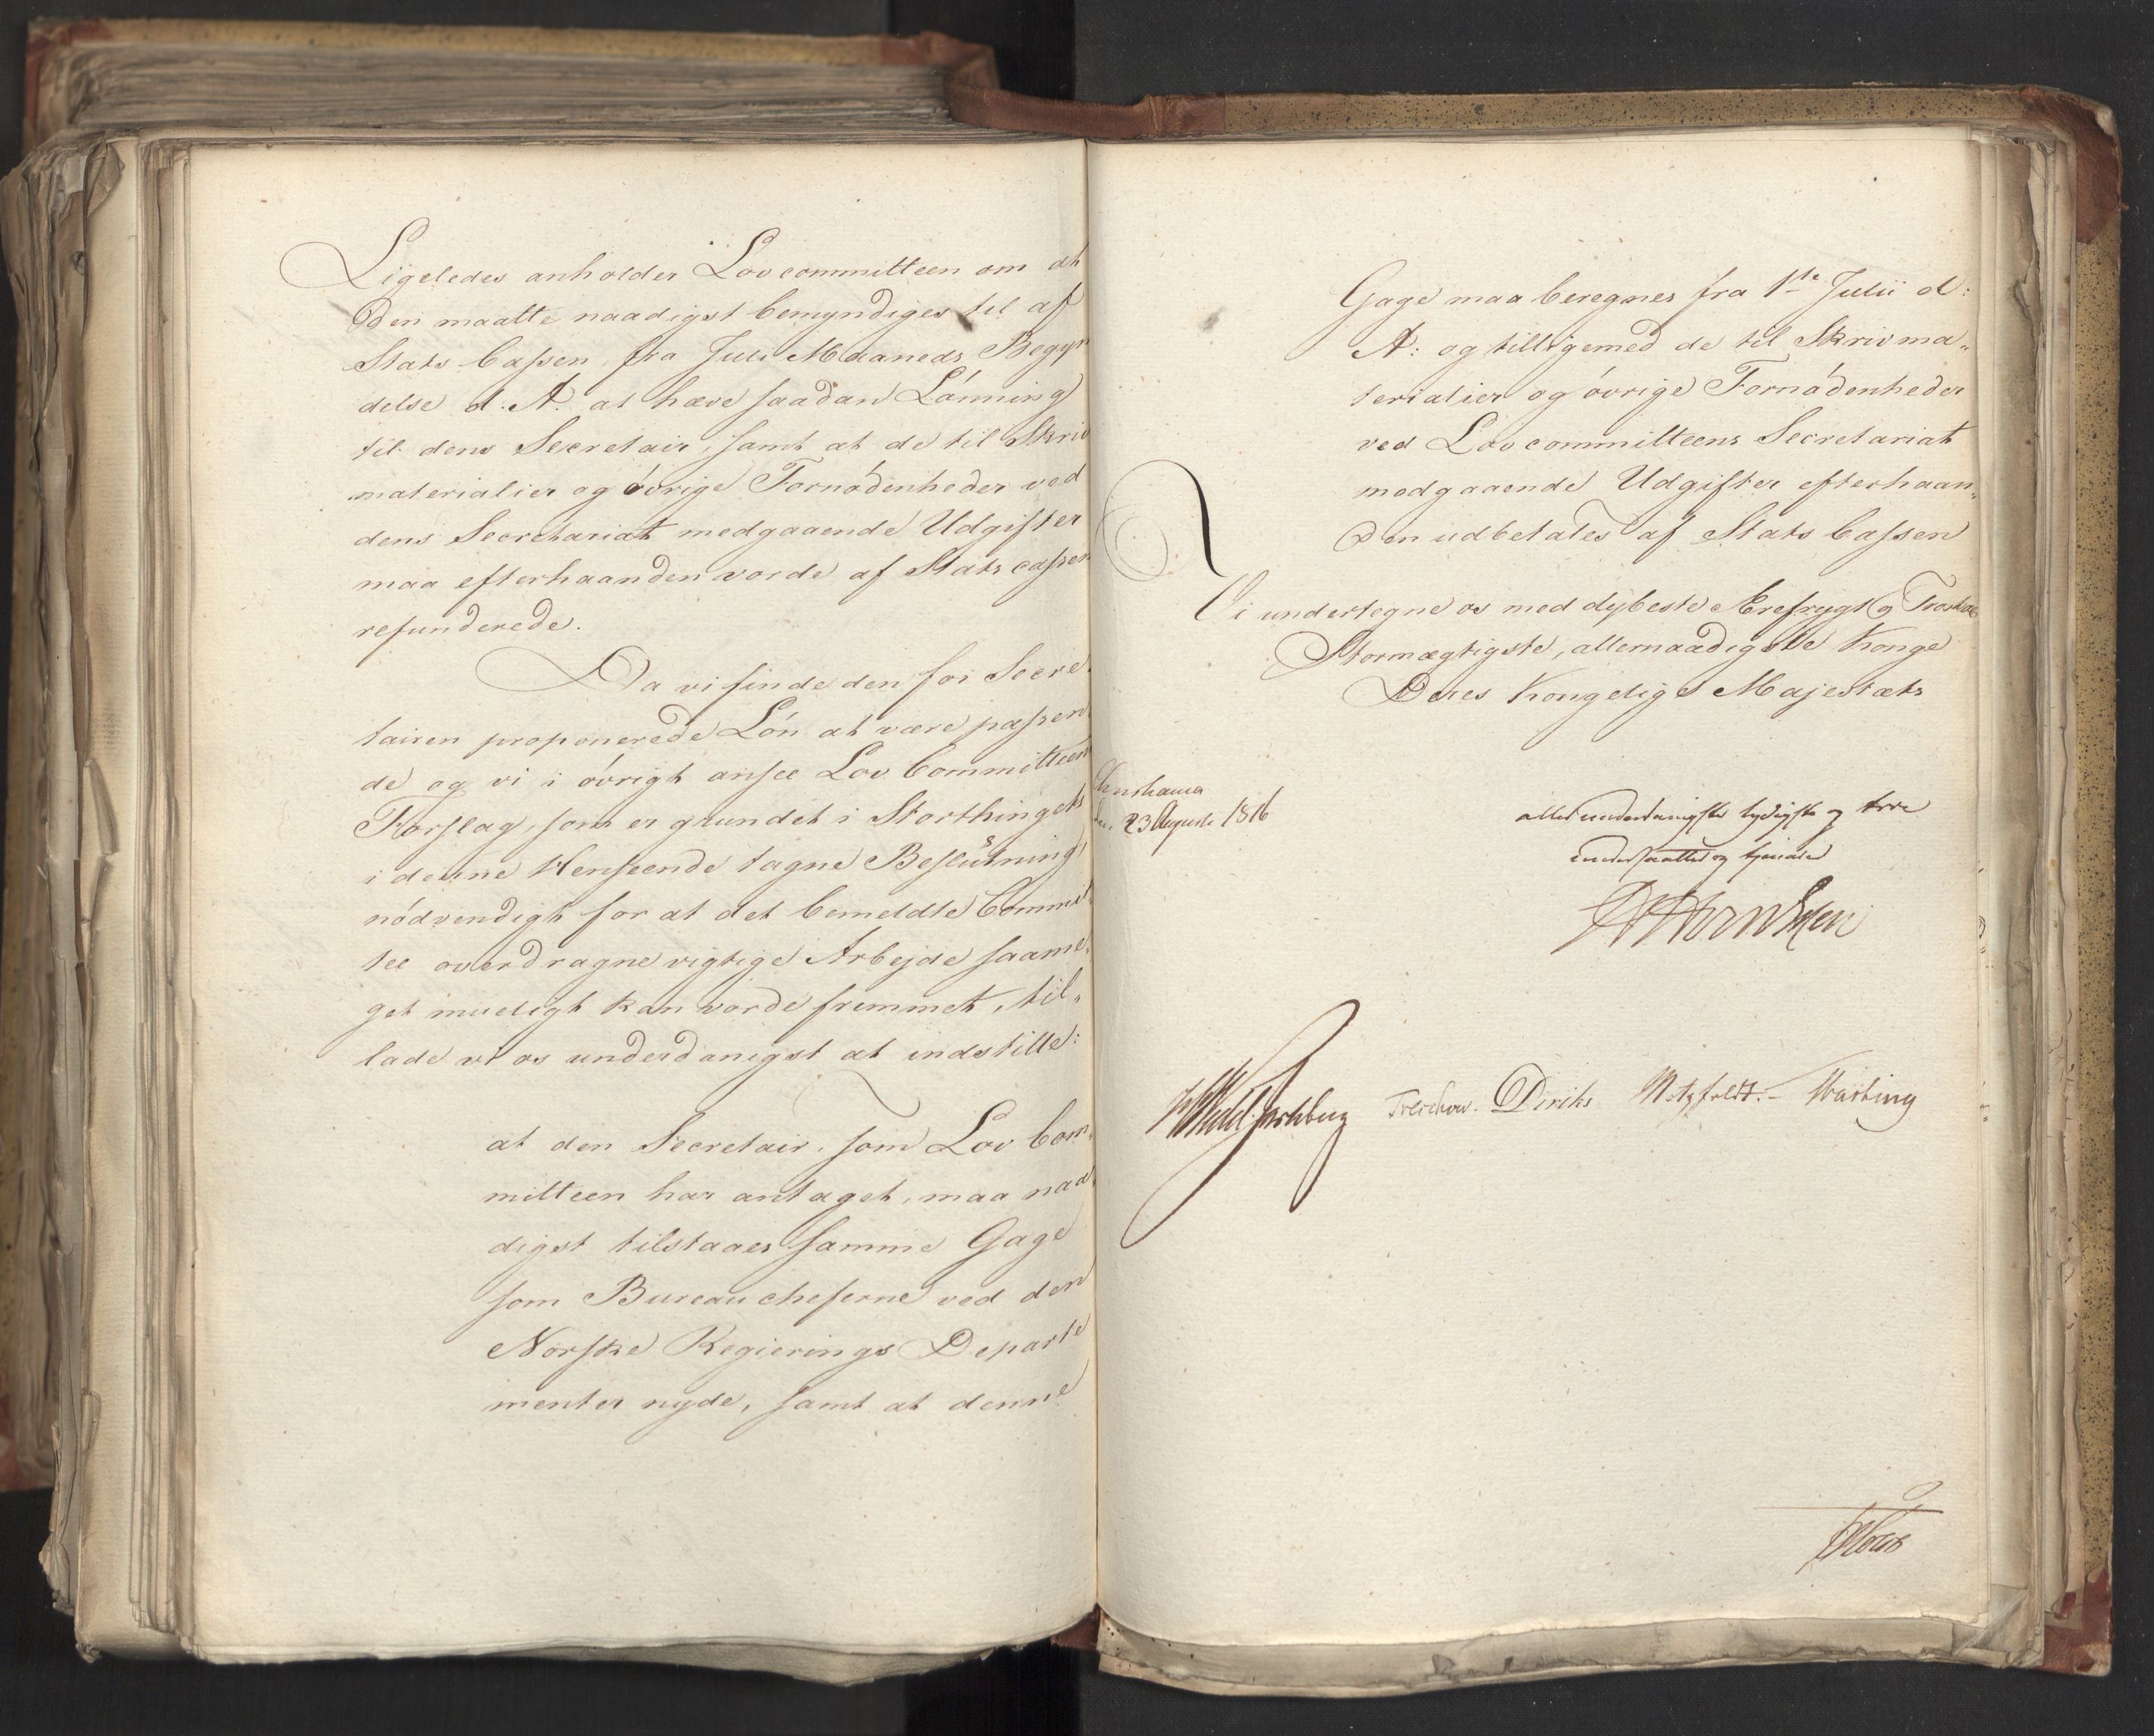 Ligeledes anholder Lovcommitteen om at
den maatte naadigst bemyndiges til af
Stats Cassen fra Juli Maaneds Begyn
delse d. A. at hæve saadan Lönning
til dens Secretair, samt at de til Skriv
materialier og övrige Fornödenheder ved
dens Secretariat medgaaende Udgifter
maa efterhaanden vorde af Stats cassen
refunderede.
Da vi finde den for Secre
tairen proponerede Lön at være passen
de og vi i övrigt ansee Lov Committeens
Forslag, som er grundet i Storthingets
i denne Henseende tagne Beslutning,
nödvendigt for at det bemeldte Commit
tee overdragne vigtige Arbejde saame„
get mueligt kan vorde fremmet, til„
lade vi os underdanigst at indstille:
at den Secretair, som Lov Com„
mitteen har antaget, maa naa„
digst tilstaaes samme Gage
som Bureaucheferne ved den
Norske Regierings Departe
menter nyde, samt at denne
Gage maa beregnes fra 1ste Julii d:
A: og tilligemed de til Skrivma„
terialier og övrige Fornödenheder
ved Lovcommitteens Secretariat
medgaaende Udgifter efterhaan„
den udbetales af Stats Cassen
Vi undertegne os med dybeste Ærefrygt og Troskab
Stormægtigste, allernaadigste Konge
Deres Kongelige Majestæts
Christiania
den 23 August 1816
allerunderdanigste lydigste og troe
undersaatter og tjenere
Treschow. Diriks Motzfeldt. Hasting